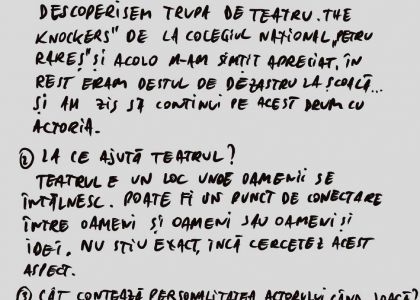 DESCOPERISEM TRUPA DE TEATRU "THE
KNOCKERS" DE LA COLEGIUL NAȚIONAL „PETRU
RAREȘ" ȘI ACOLO M-AM SIMȚIT APRECIAT. ÎN
REST ERAM DESTUL DE DEZASTRU LA ȘCOALĂ...
ȘI AM ZIS SĂ CONTINUI PE ACEST DRUM CU
ACTORIA.
② LA CE AJUTĂ TEATRUL?
TEATRUL E UN LOC UNDE OAMENII SE
ÎNTÂLNESC. POATE FI UN PUNCT DE CONECTARE
ÎNTRE OAMENI ȘI OAMENI SAU OAMENI ȘI
IDEI. NU ȘTIU EXACT, ÎNCĂ CERCETEZ ACEST
ASPECT.
③ CÂT CONTEAZĂ PERSONALITATEA ACTORULUI CÂND JOACĂ?